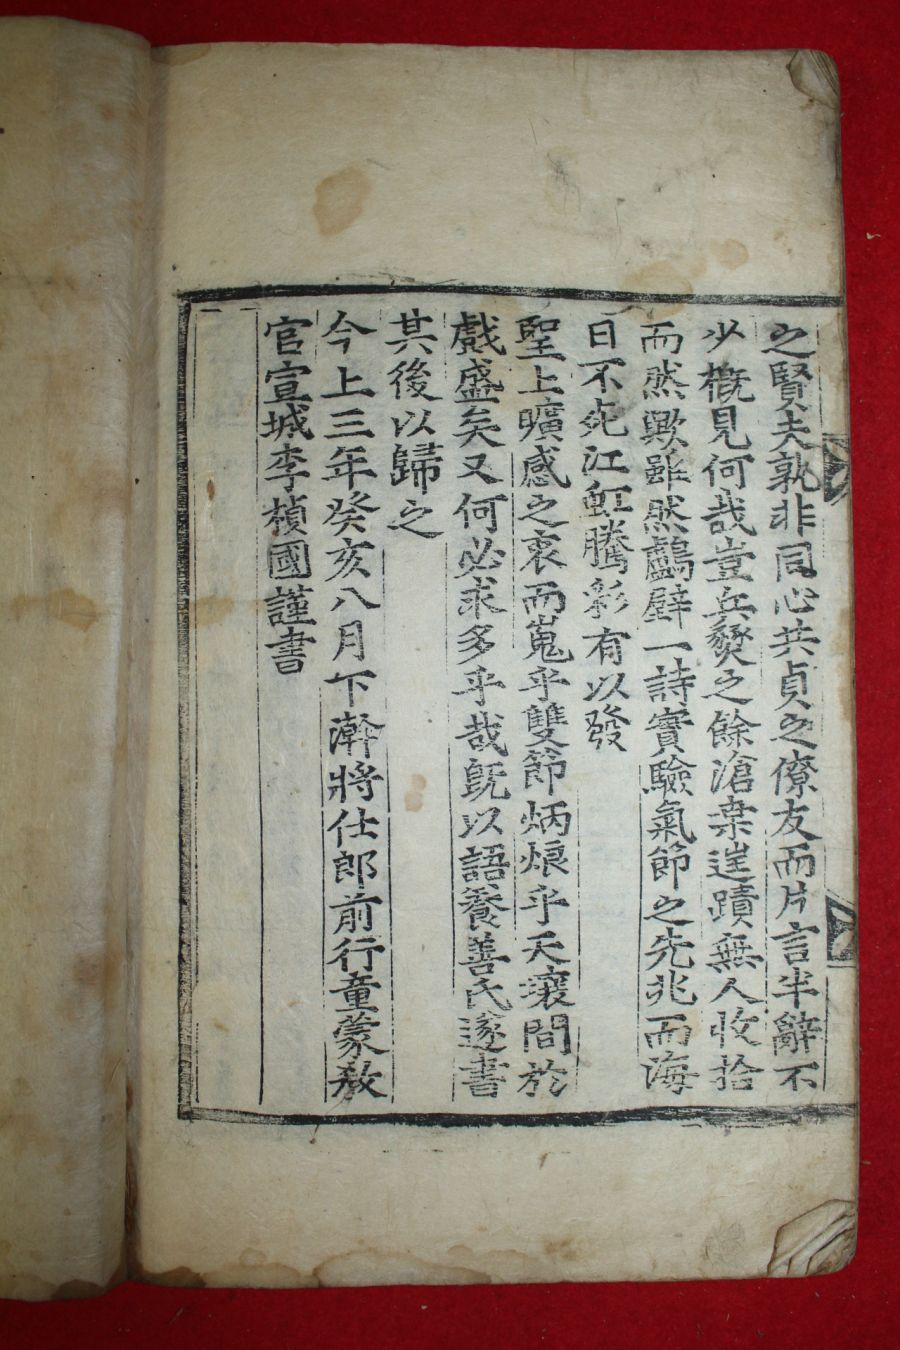 之賢夫孰非同心共貞之僚友而片言半辭不
少槪見何哉豈兵燹之餘滄桒迬蹟無人收拾
而然歟雖然鸕壁一詩實驗氣節之先兆而海
日不死江虹騰彩有以發
聖上曠感之衷而嵬乎雙節炳烺乎天壤間於
戱盛矣又何必求多乎哉旣以語養善氏遂書
其後以歸之
今上三年癸亥八月下澣將仕郎前行童蒙敎
官宣城李楨國謹書